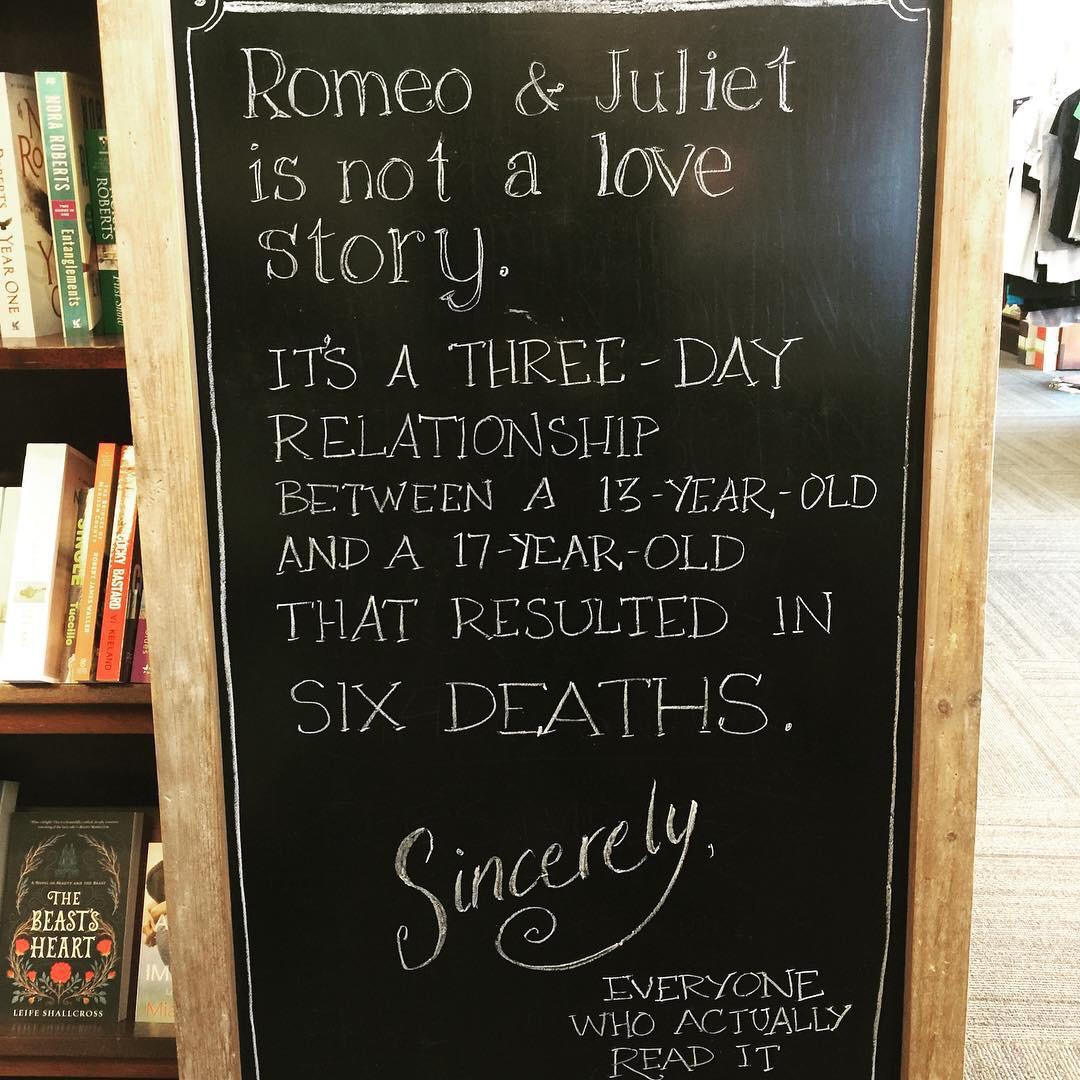 Romeo & Juliet
is not a love
story.
IT'S A THREE-DAY
RELATIONSHIP
BETWEEN A 13-YEAR-OLD
AND A 17-YEAR-OLD
THAT RESULTED IN
SIX DEATHS.
Sincerely,
EVERYONE
WHO ACTUALLY
READ IT
YEAR ONE
NORA ROBERTS
Entanglements
ROBERTS
SINGLE
Tuccillo
ROBERT JAMES WALLER
COCKY BASTARD
VI KEELAND
A NOVEL OF BEAUTY AND THE BEAST
THE
BEAST'S
HEART
LEIFE SHALLCROSS